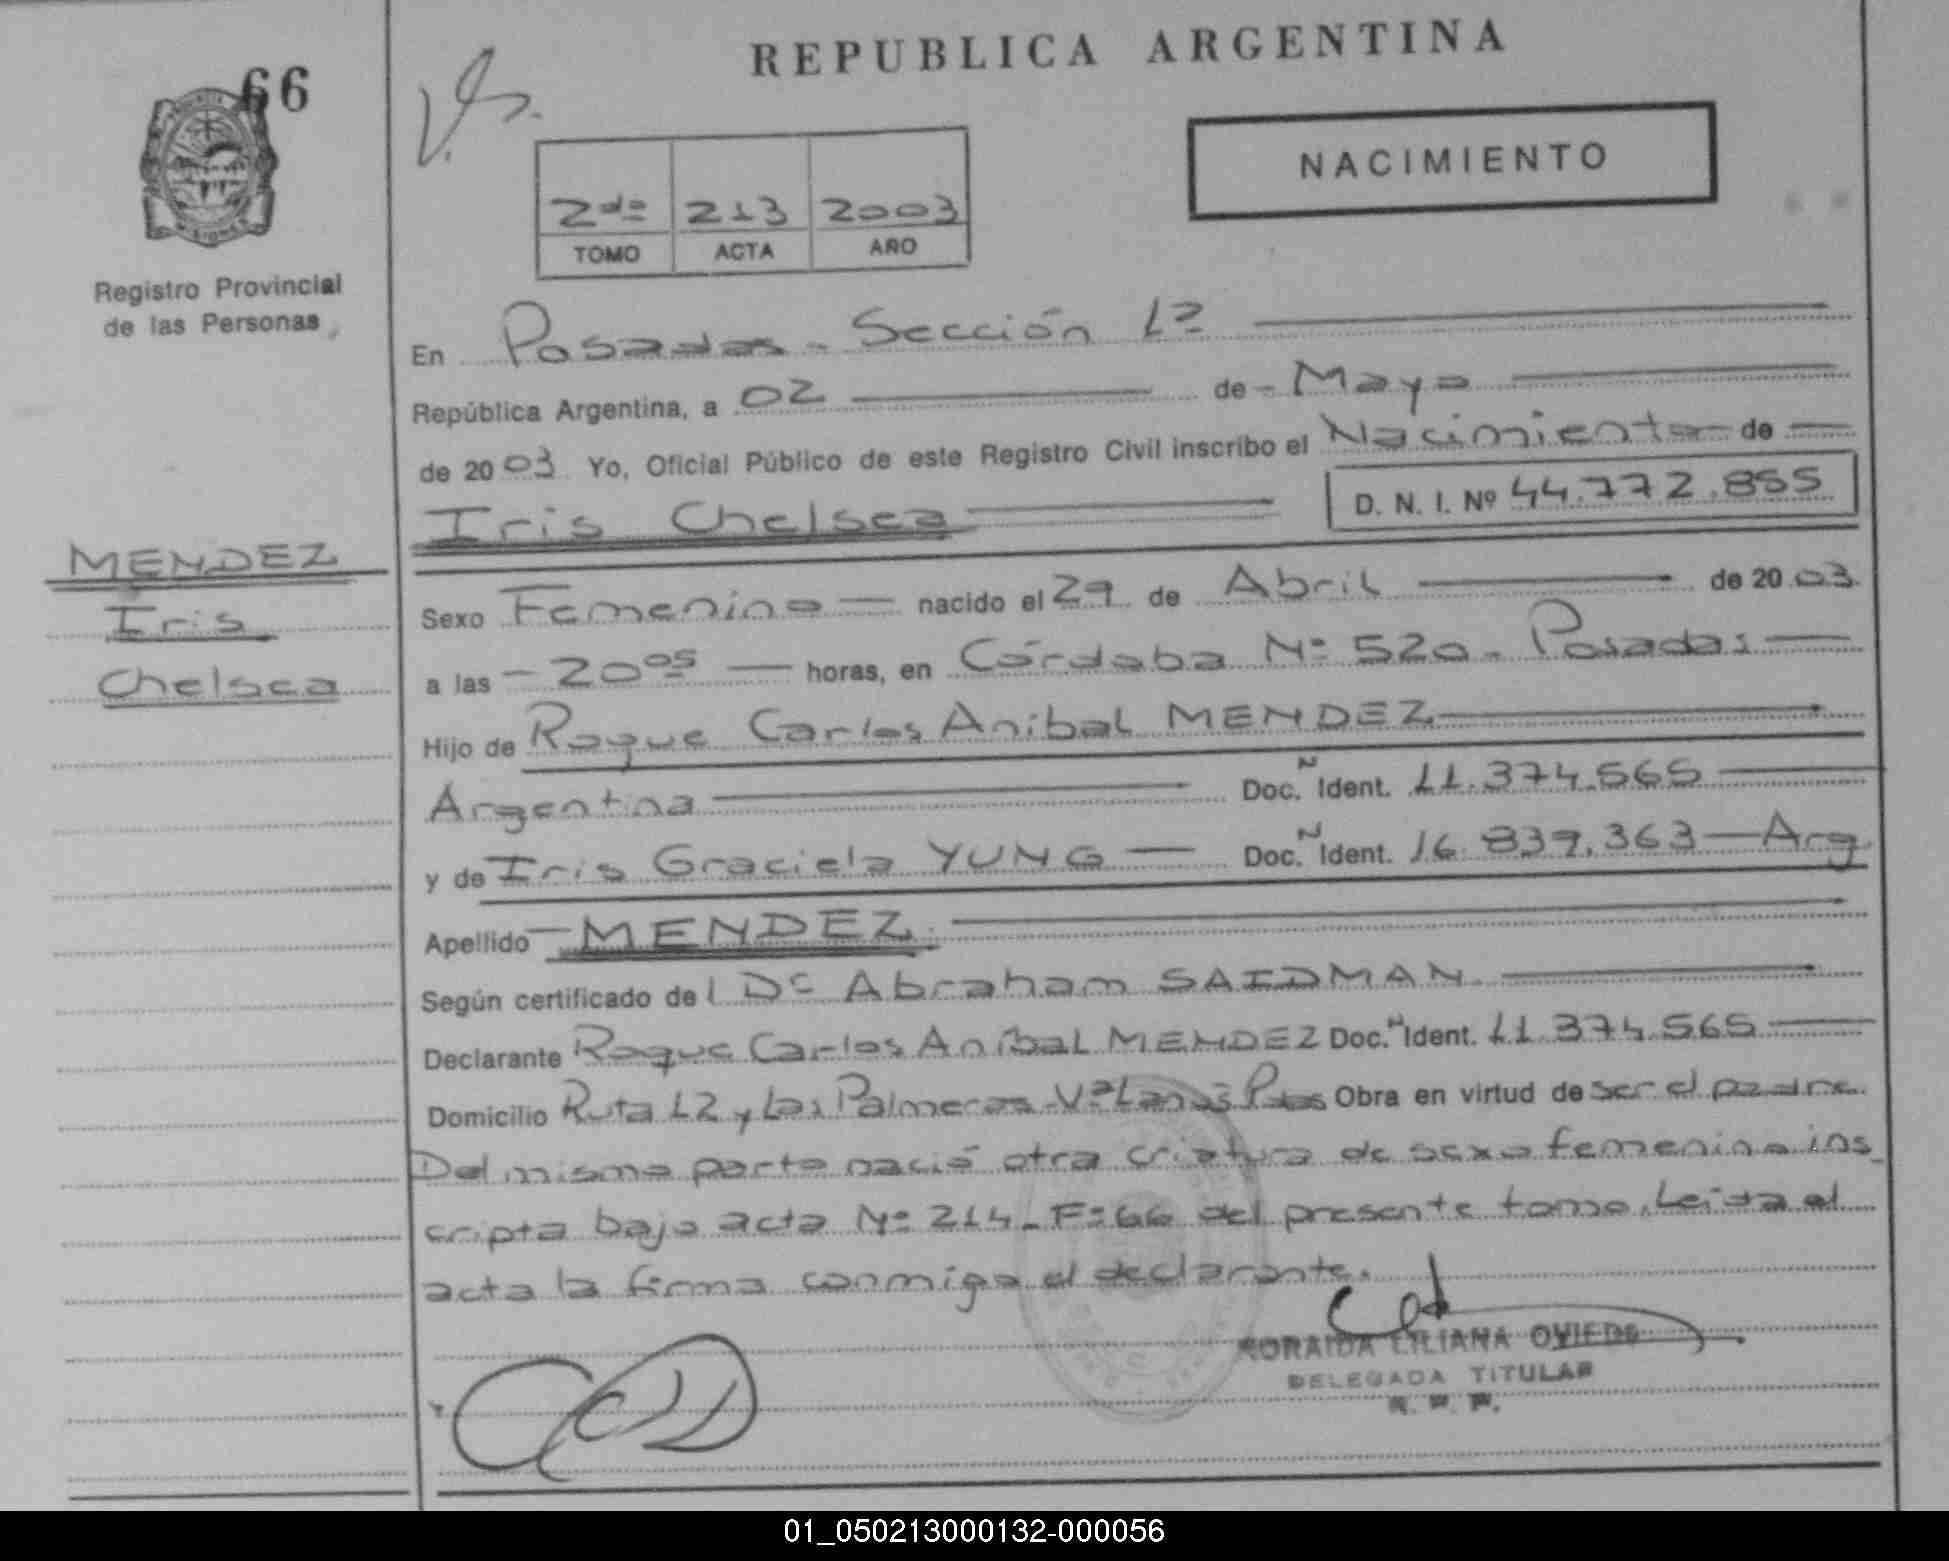 66
REPUBLICA ARGENTINA
NACIMIENTO
2do 213 2003
TOMO ACTA AÑO
Registro Provincial
de las Personas
En Posadas - Sección 1ª
República Argentina, a 02 de Mayo
de 2003 Yo, Oficial Público de este Registro Civil inscribo el Nacimiento de
Iris Chelsea D. N. I. Nº 44.772.855
MENDEZ
Iris
Chelsea
Sexo Femenino nacido el 29 de Abril de 2003
a las 20 05 horas, en Córdoba Nº 520 - Posadas
Hijo de Roque Carlos Anibal MENDEZ
Argentina Doc. N Ident. 11.374.565
y de Iris Graciela YUNG Doc. N Ident. 16.839.363 Arg.
Apellido MENDEZ
Según certificado de l Dr Abraham SAIDMAN.
Declarante Roque Carlos Aníbal MENDEZ Doc. N Ident. 11.374.565
Domicilio Ruta 12 y Las Palmeras - Vª Lanús Pdas Obra en virtud de ser el padre.
Del mismo parto nació otra criatura de sexo femenino ins_
cripta bajo acta Nº 214 - Fº 66 del presente tomo. Leída el
acta la firma conmigo el declarante.
SORAIDA LILIANA OVIEDO
DELEGADA TITULAR
R. P. P.
01_050213000132-000056